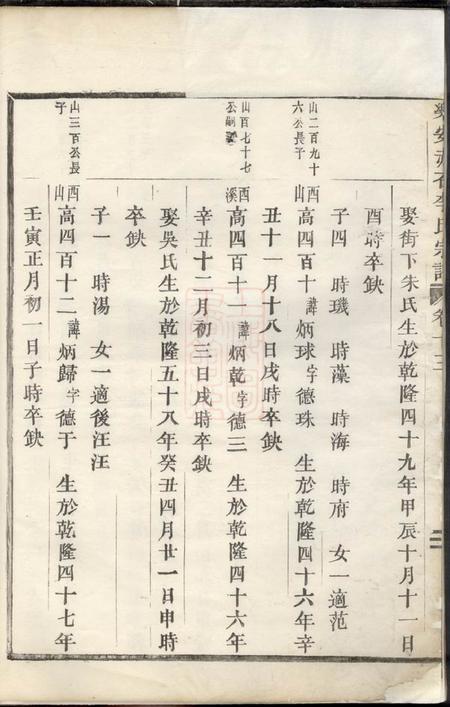 安赤石李氏宗譜 卷十三
娶街下朱氏生於乾隆四十九年甲辰十月十一日
酉時卒缺
子四 時璣 時藻 時海 時府 女一適范
山二百九十
六公長子
西山 高四百十 諱炳球字德珠 生於乾隆四十六年辛
丑十一月十八日戌時卒缺
山百七十七
公嗣
西溪 高四百十一 諱炳乾字德三 生於乾隆四十六年
辛丑十二月初三日戌時卒缺
娶吳氏生於乾隆五十八年癸丑四月廿一日申時
卒缺
子一 時湯 女一適後汪汪
山三百公長
子
西山 高四百十二 諱炳歸字德于 生於乾隆四十七年
壬寅正月初一日子時卒缺